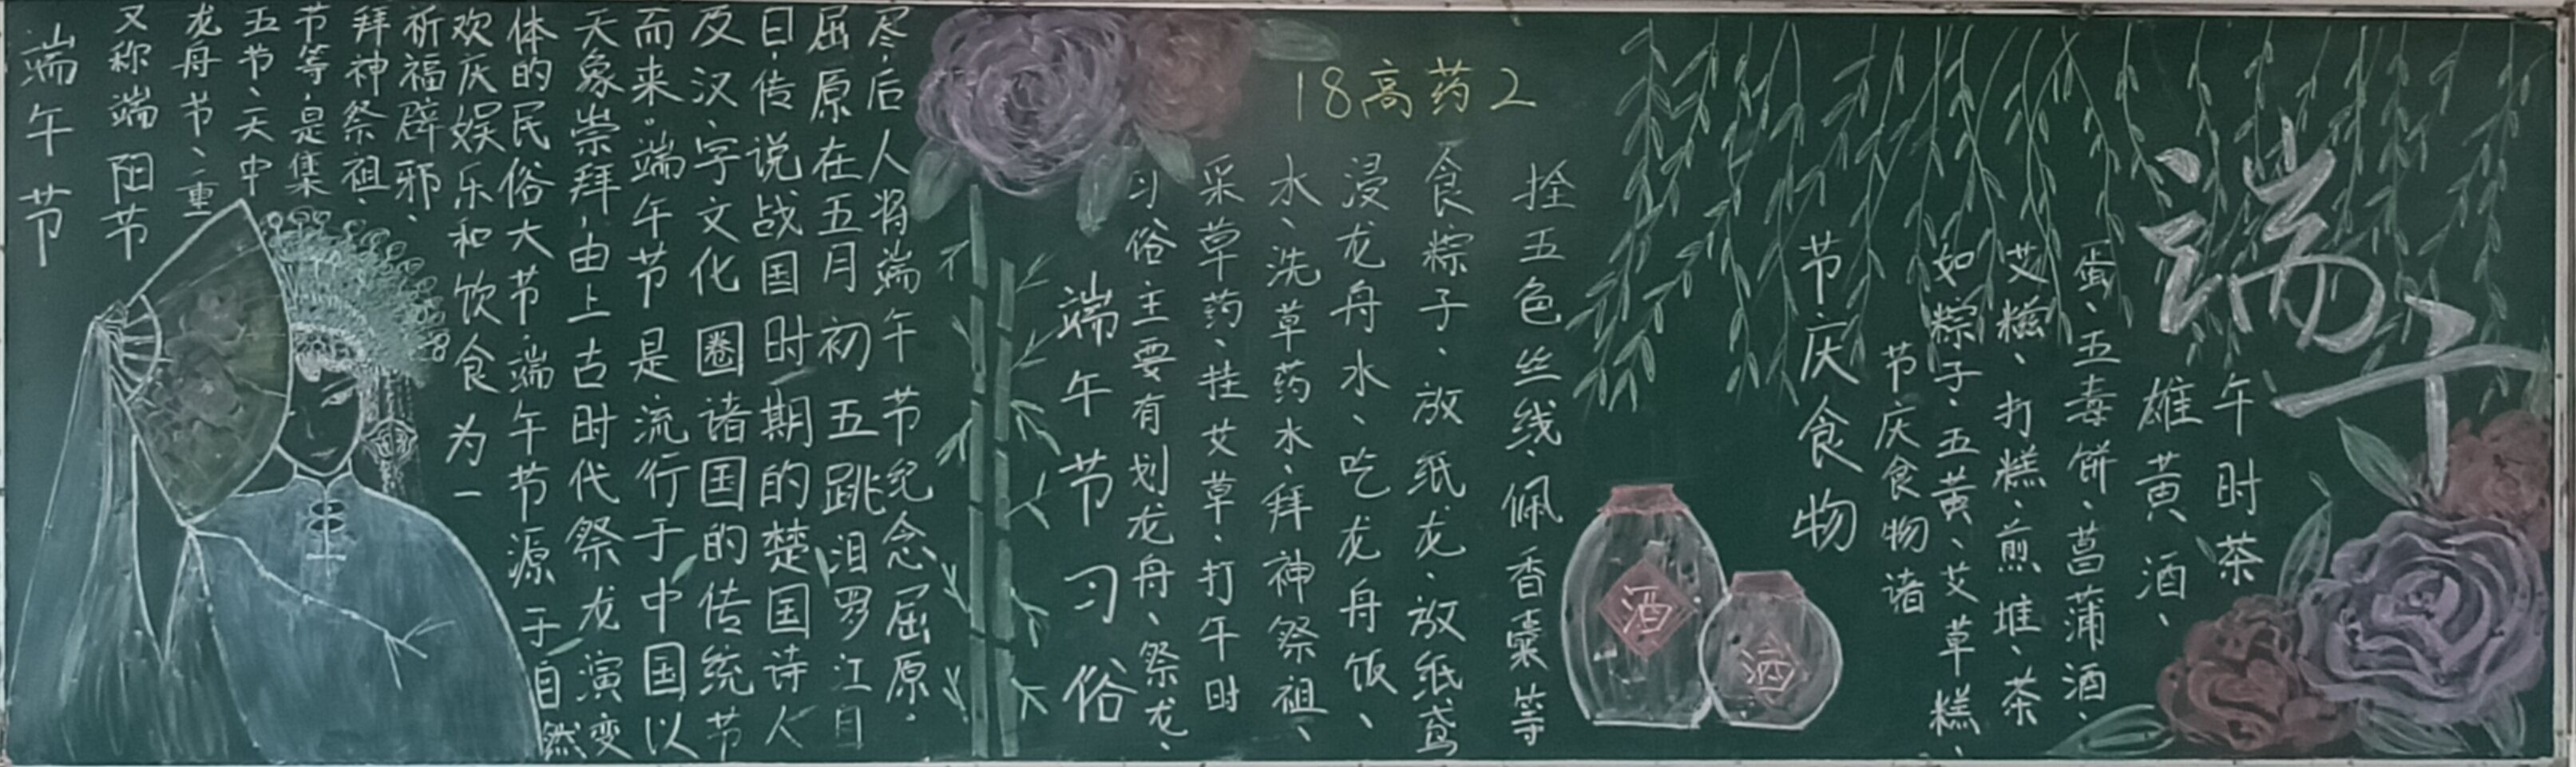 端午节
又称端阳节
龙舟节、重
五节、天中
节等,是集
拜神祭祖、
祈福辟邪、
欢庆娱乐和饮食为一
体的民俗大节,端午节源于自然
天象崇拜,由上古时代祭龙演变
而来。端午节是流行于中国以
及汉、字文化圈诸国的传统节
日,传说战国时期的楚国诗人
屈原在五月初五跳汨罗江自
尽,后人将端午节纪念屈原.
18高药2
端午节习俗
习俗主要有划龙舟、祭龙、
采草药、挂艾草、打午时
水、洗草药水、拜神祭祖、
浸龙舟水、吃龙舟饭、
食粽子、放纸龙、放纸鸢
拴五色丝线、佩香囊等
酒
酒
节庆食物
节庆食物诸
如粽子、五黄、艾草糕、
艾糍、打糕、煎堆、茶
蛋、五毒饼、菖蒲酒、
雄黄酒、
午时茶
端午